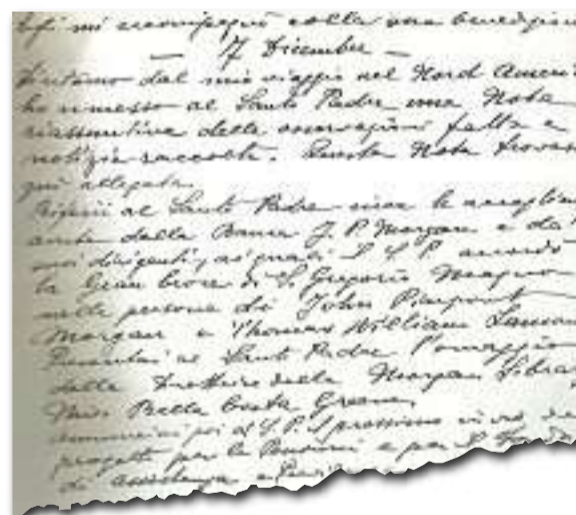 mi accompagnò colla sua benedizion
— 7 Dicembre —
Ritorno dal mio viaggio nel Nord Ameri
ho rimesso al Santo Padre una Nota
riassuntiva delle osservazioni fatte e
notizie raccolte. Questa Nota trovasi
qui allegata.
Riferii al Santo Padre circa le accoglien
avute dalla Banca J. P. Morgan e da
suoi dirigenti, ai quali S. P. accordò
la Gran Croce di S. Gregorio Magno
nelle persone di John Pierpont
Morgan e Thomas William Lamon
Presentai al Santo Padre l'omaggio
della Direttrice della Morgan Libra
Miss Bella Costa Greene
annunciai poi al S. P. prossimo
progetto per le Pensioni e per
di assistenza e